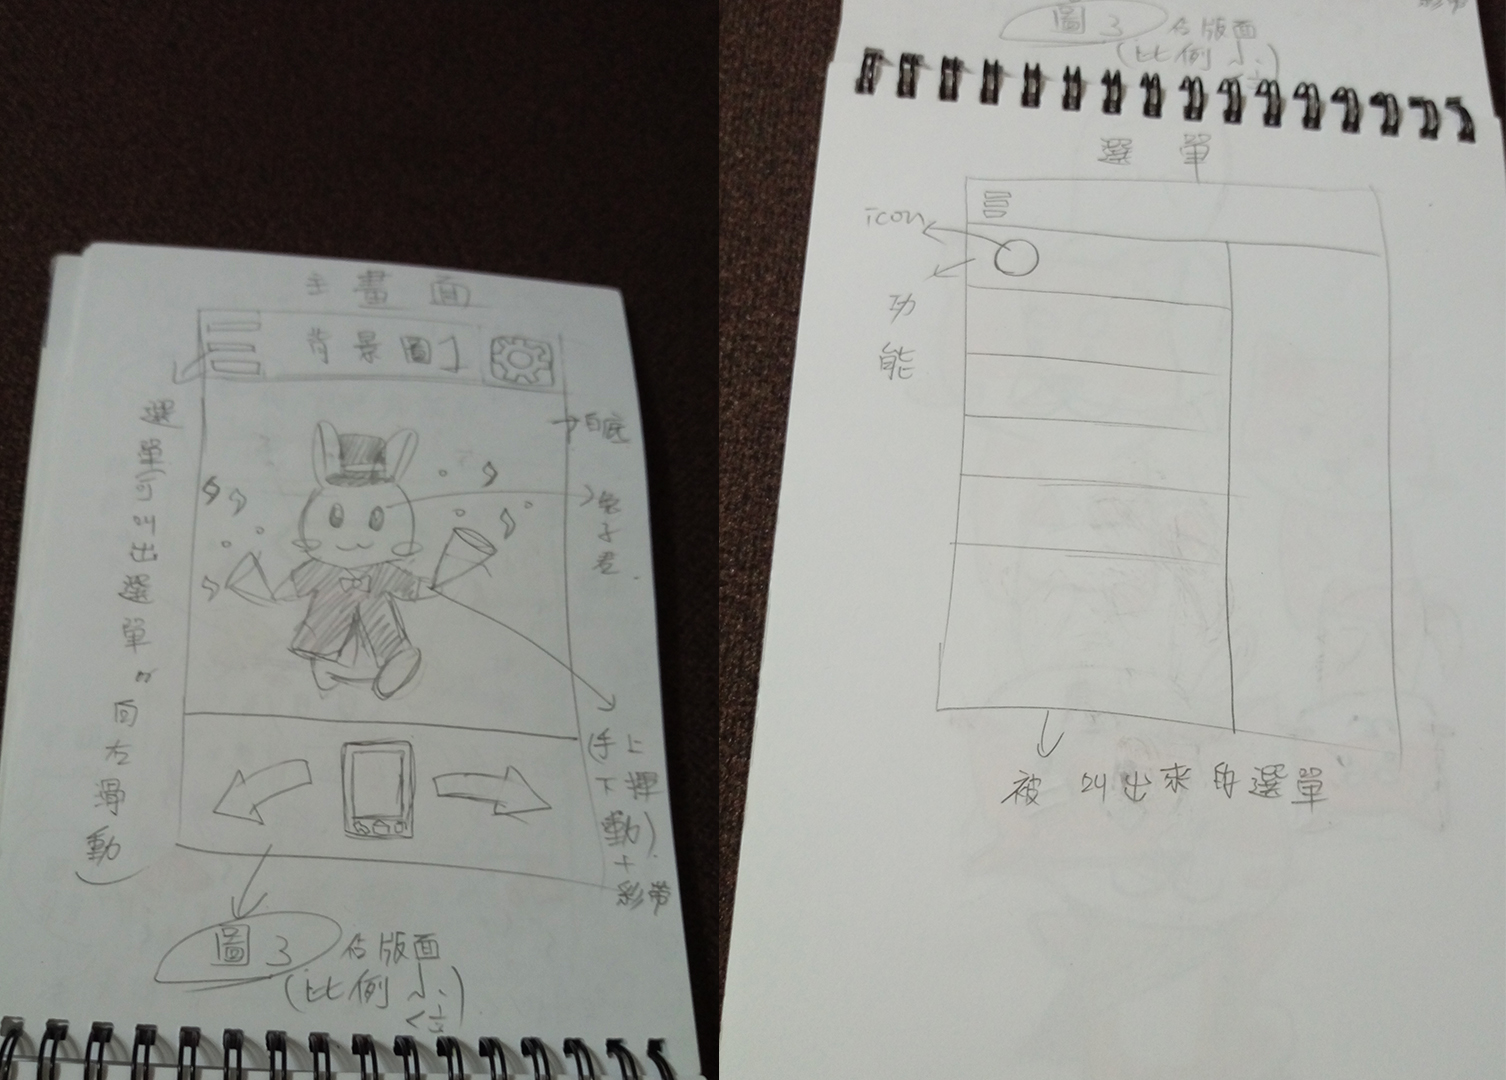 主畫面
背景圖1
選單(可叫出選單or向左滑動)
白底
兔子君.
(手上下揮動).
+
彩帶
圖3 佔版面
(比例小
圖3 佔版面
(比例小
選單
icon
功能
被叫出來的選單